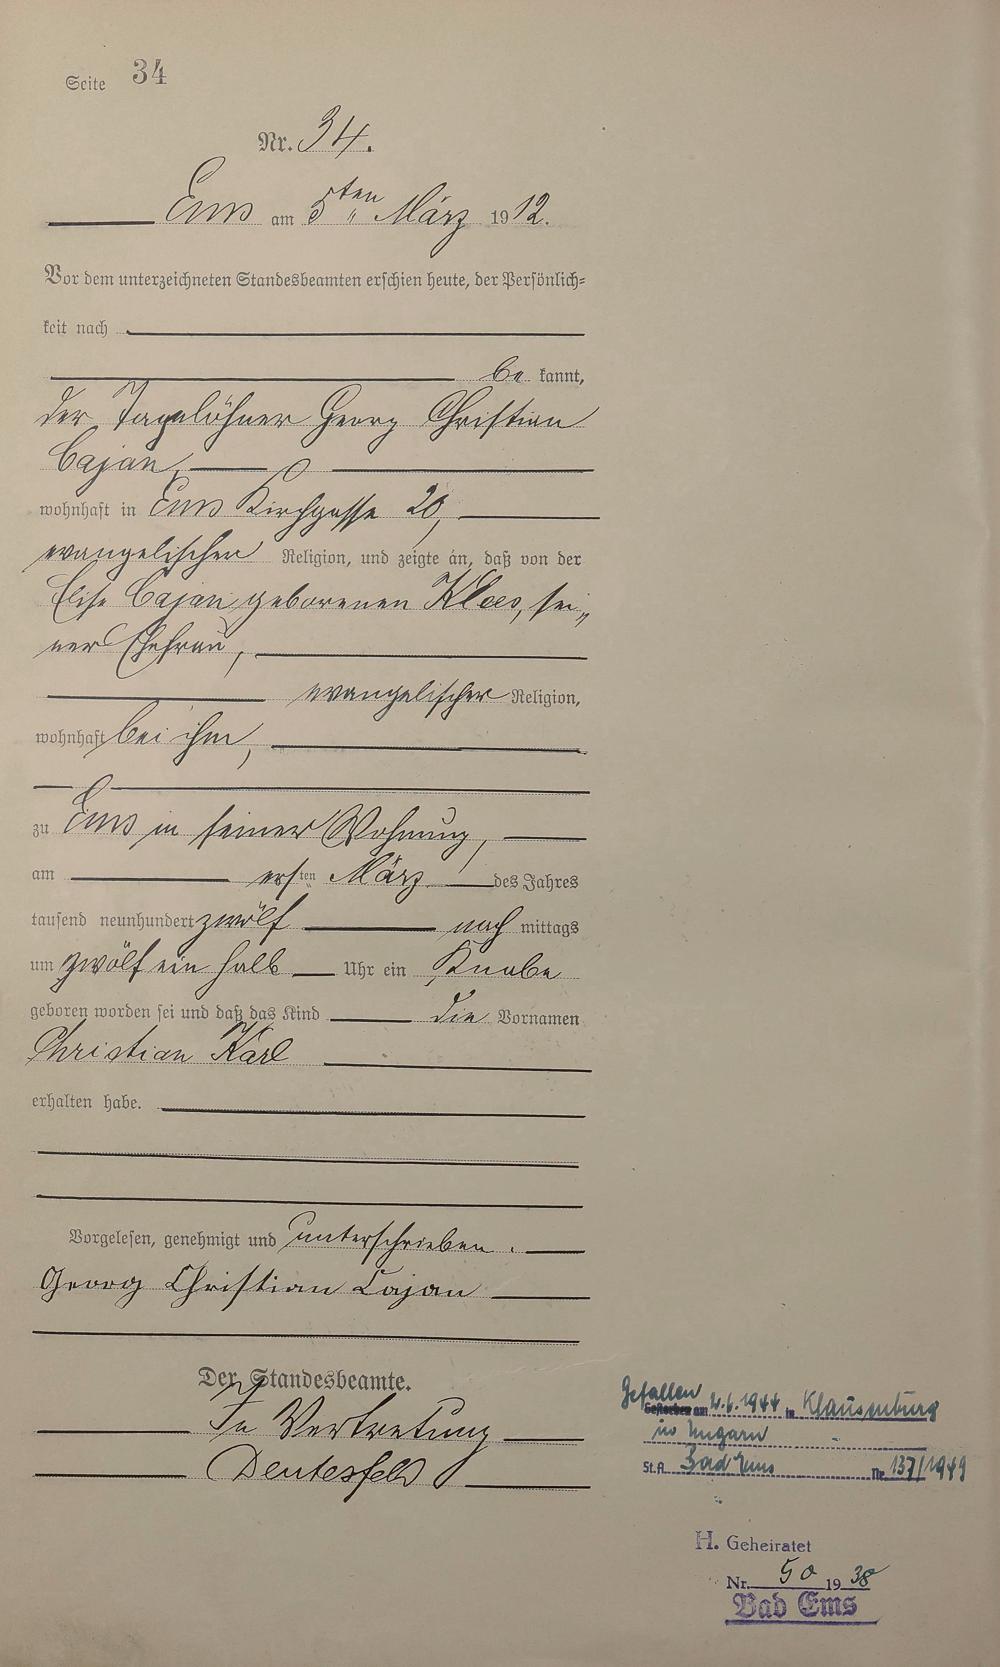 Seite 34
Nr. 34.
Ems am 5ten März 1912.
Vor dem unterzeichneten Standesbeamten erschien heute, der Persönlich-
keit nach
be kannt,
der Tagelöhner Georg Christian
Cajan,
wohnhaft in Ems Kirchgasse 20,
evangelischer Religion, und zeigte an, daß von der
Elise Cajan geborenen Kloes, sei-
ner Ehefrau,
evangelischer Religion,
wohnhaft bei ihm,
zu Ems in seiner Wohnung,
am ersten März des Jahres
tausend neunhundert zwölf nach mittags
um zwölf ein halb Uhr ein Knabe
geboren worden sei und daß das Kind die Vornamen
Christian Karl
erhalten habe.
Vorgelesen, genehmigt und unterschrieben.
Georg Christian Cajan
Der Standesbeamte.
In Vertretung
Deutesfeld
Gefallen
Gestorben am 4.6.1944 in Klausenburg
in Ungarn
St.A. Bad Ems Nr. 137/1949
H. Geheiratet
Nr. 50 1938
Bad Ems